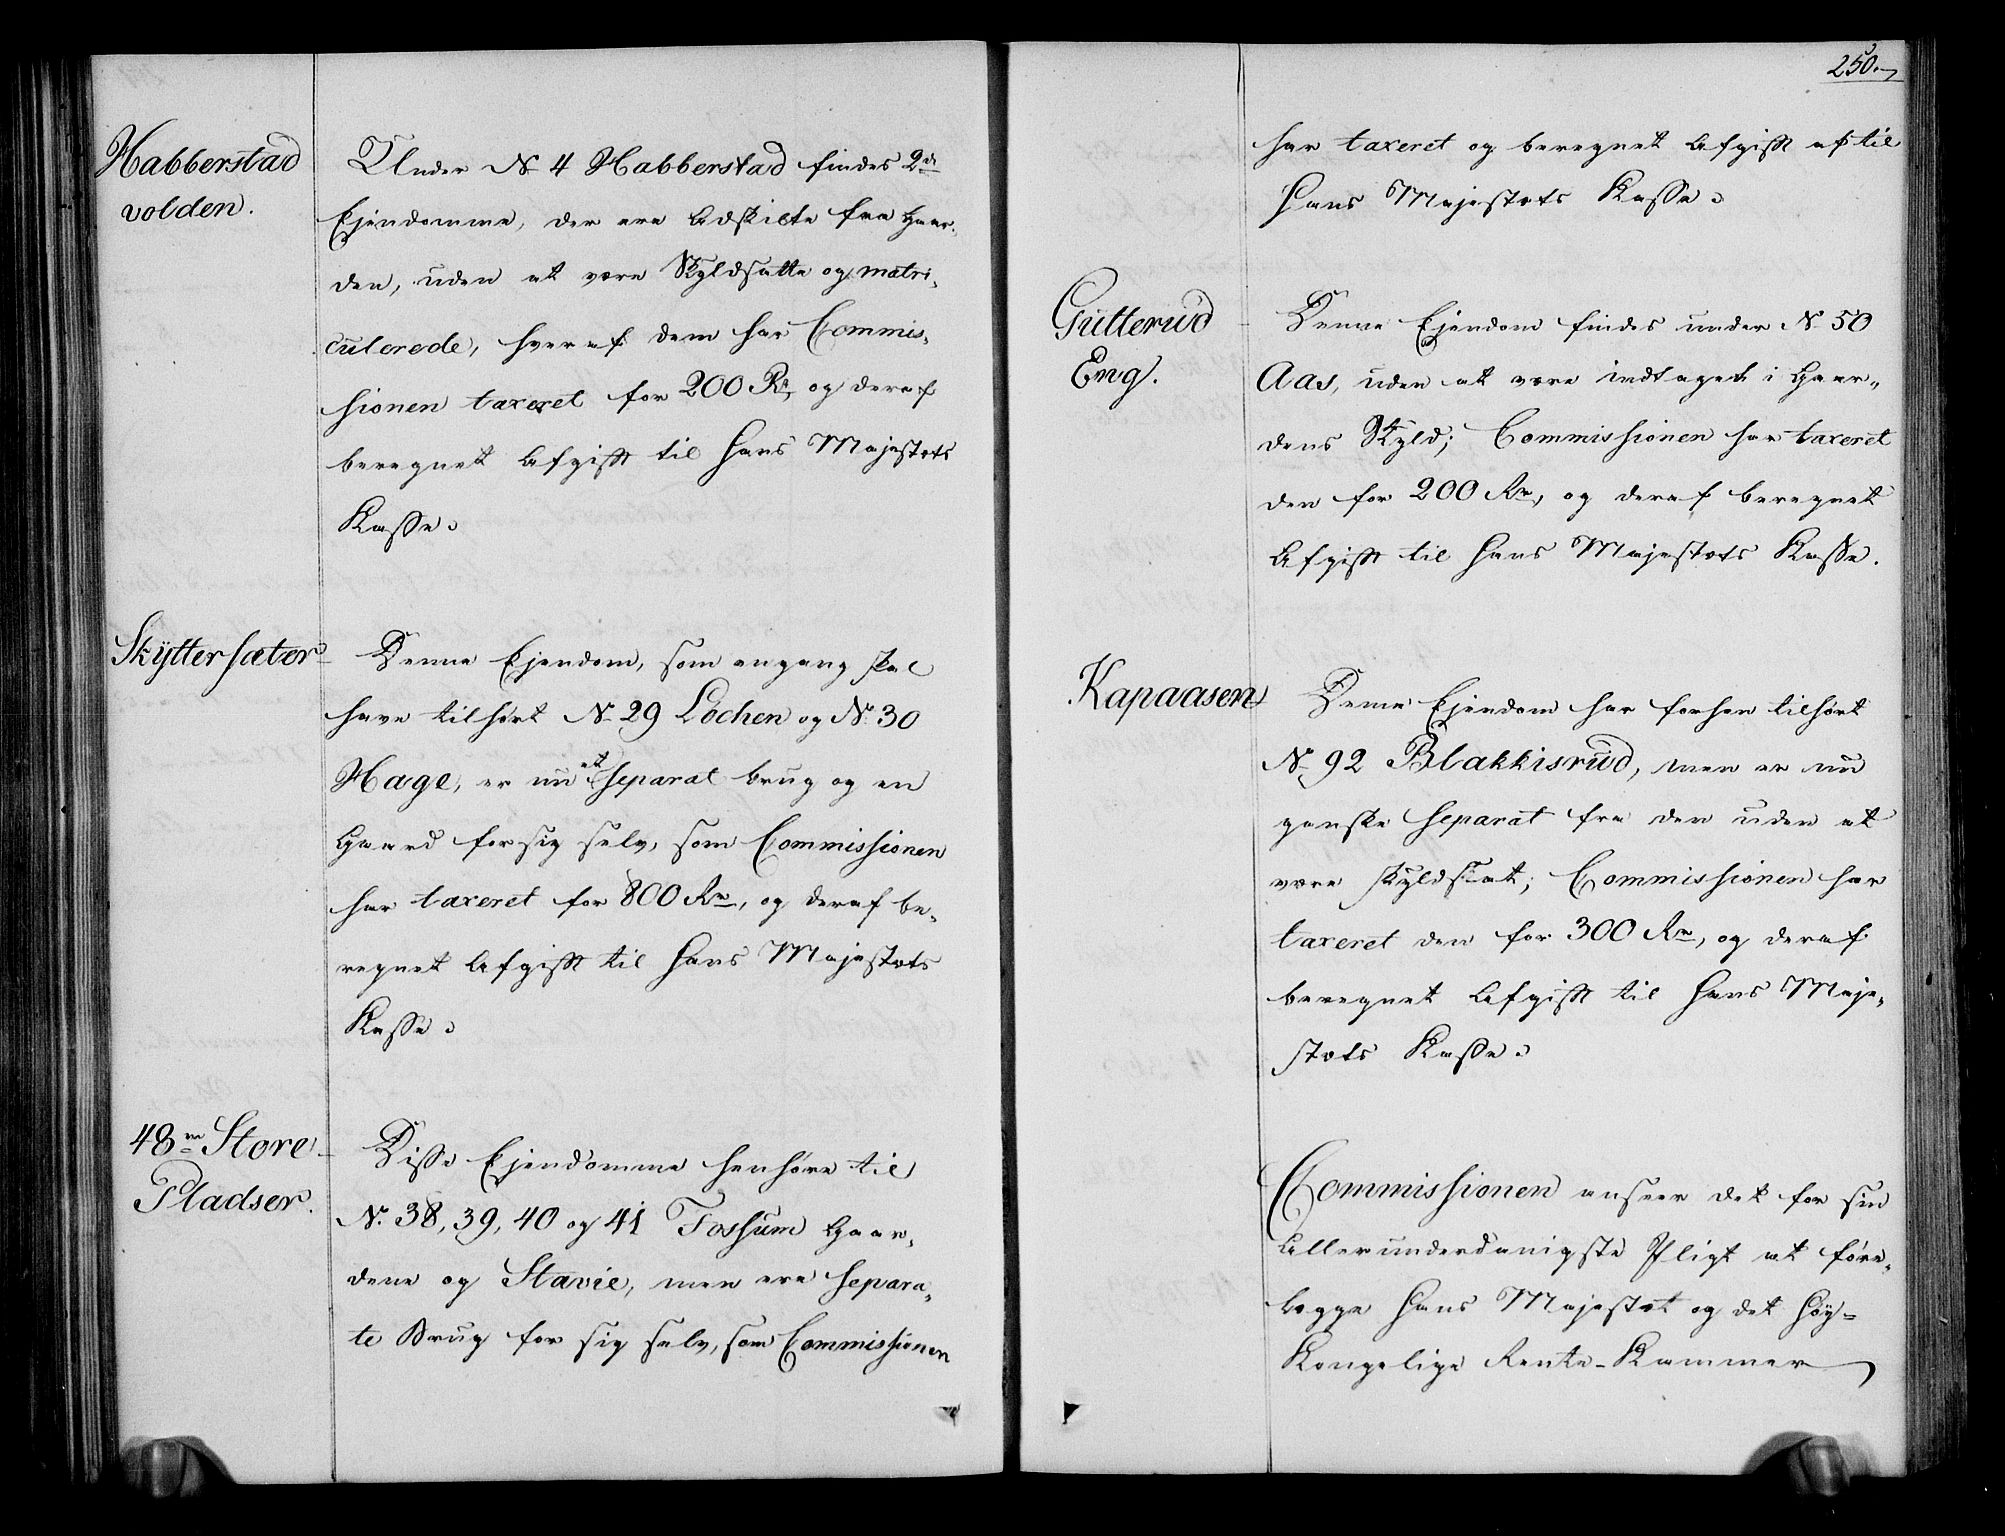 Habberstad
volden.
Under No 4 Habberstad findes 2de
Ejendomme, der ere adskilte fra Gaar-
den, uden at være Skyldsatte og matri-
culerede, hveraf dem har Commis-
sionen taxeret for 200 Rd, og deraf
beregnet Afgift til Hans Majestæts
Kasse.
Skyttersæter
Denne Ejendom, som engang skal
have tilhørt No 29 Lochen og No 30
Hage, er nu et separat brug og en
Gaard for sig selv, som Commissionen
har taxeret for 800 Rdr, og deraf be-
regnet Afgift til Hans Majestæts
Kasse.
48de Store
Pladser.
Disse Ejendomme henhøre til
No. 38, 39, 40 og 41 Fossum Gaar-
dene og Stavie, men ere separa-
te Brug for sig selv, som Commissionen
250.
har taxeret og beregnet Afgift af til
Hans Majestæts Kasse.
Gutterud
Eng.
Denne Ejendom findes under No 50
Aas, uden at være indtaget i Gaar-
dens Skyld; Commissionen har taxeret
den for 200 Rdr, og deraf beregnet
Afgift til Hans Majestæts Kasse.
Kapaasen
Denne Ejendom har forhen tilhørt
No 92 Blakkisrud, men er nu
ganske separat fra den uden at
være skyldsat; Commissionen har
taxeret den for 300 Rdr, og deraf
beregnet Afgift til Hans Maje-
stæts Kasse.
Commissionen anseer det for sin
allerunderdanigste Pligt at fore-
lægge Hans Majestæt og det Høy-
Kongelige Rente-Kammer